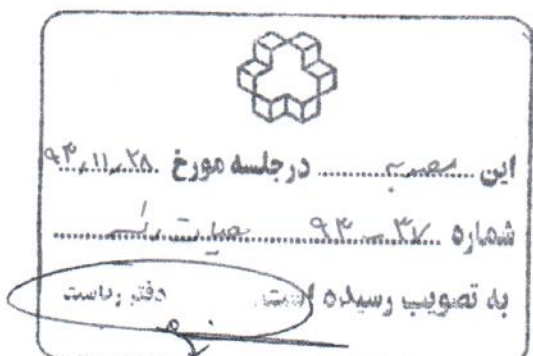 این مصوبه در جلسه مورخ ۹۳,۱۱,۲۸
شماره ۳۷ - ۹۳ هیات رئیسه
به تصویب رسیده است. دفتر ریاست